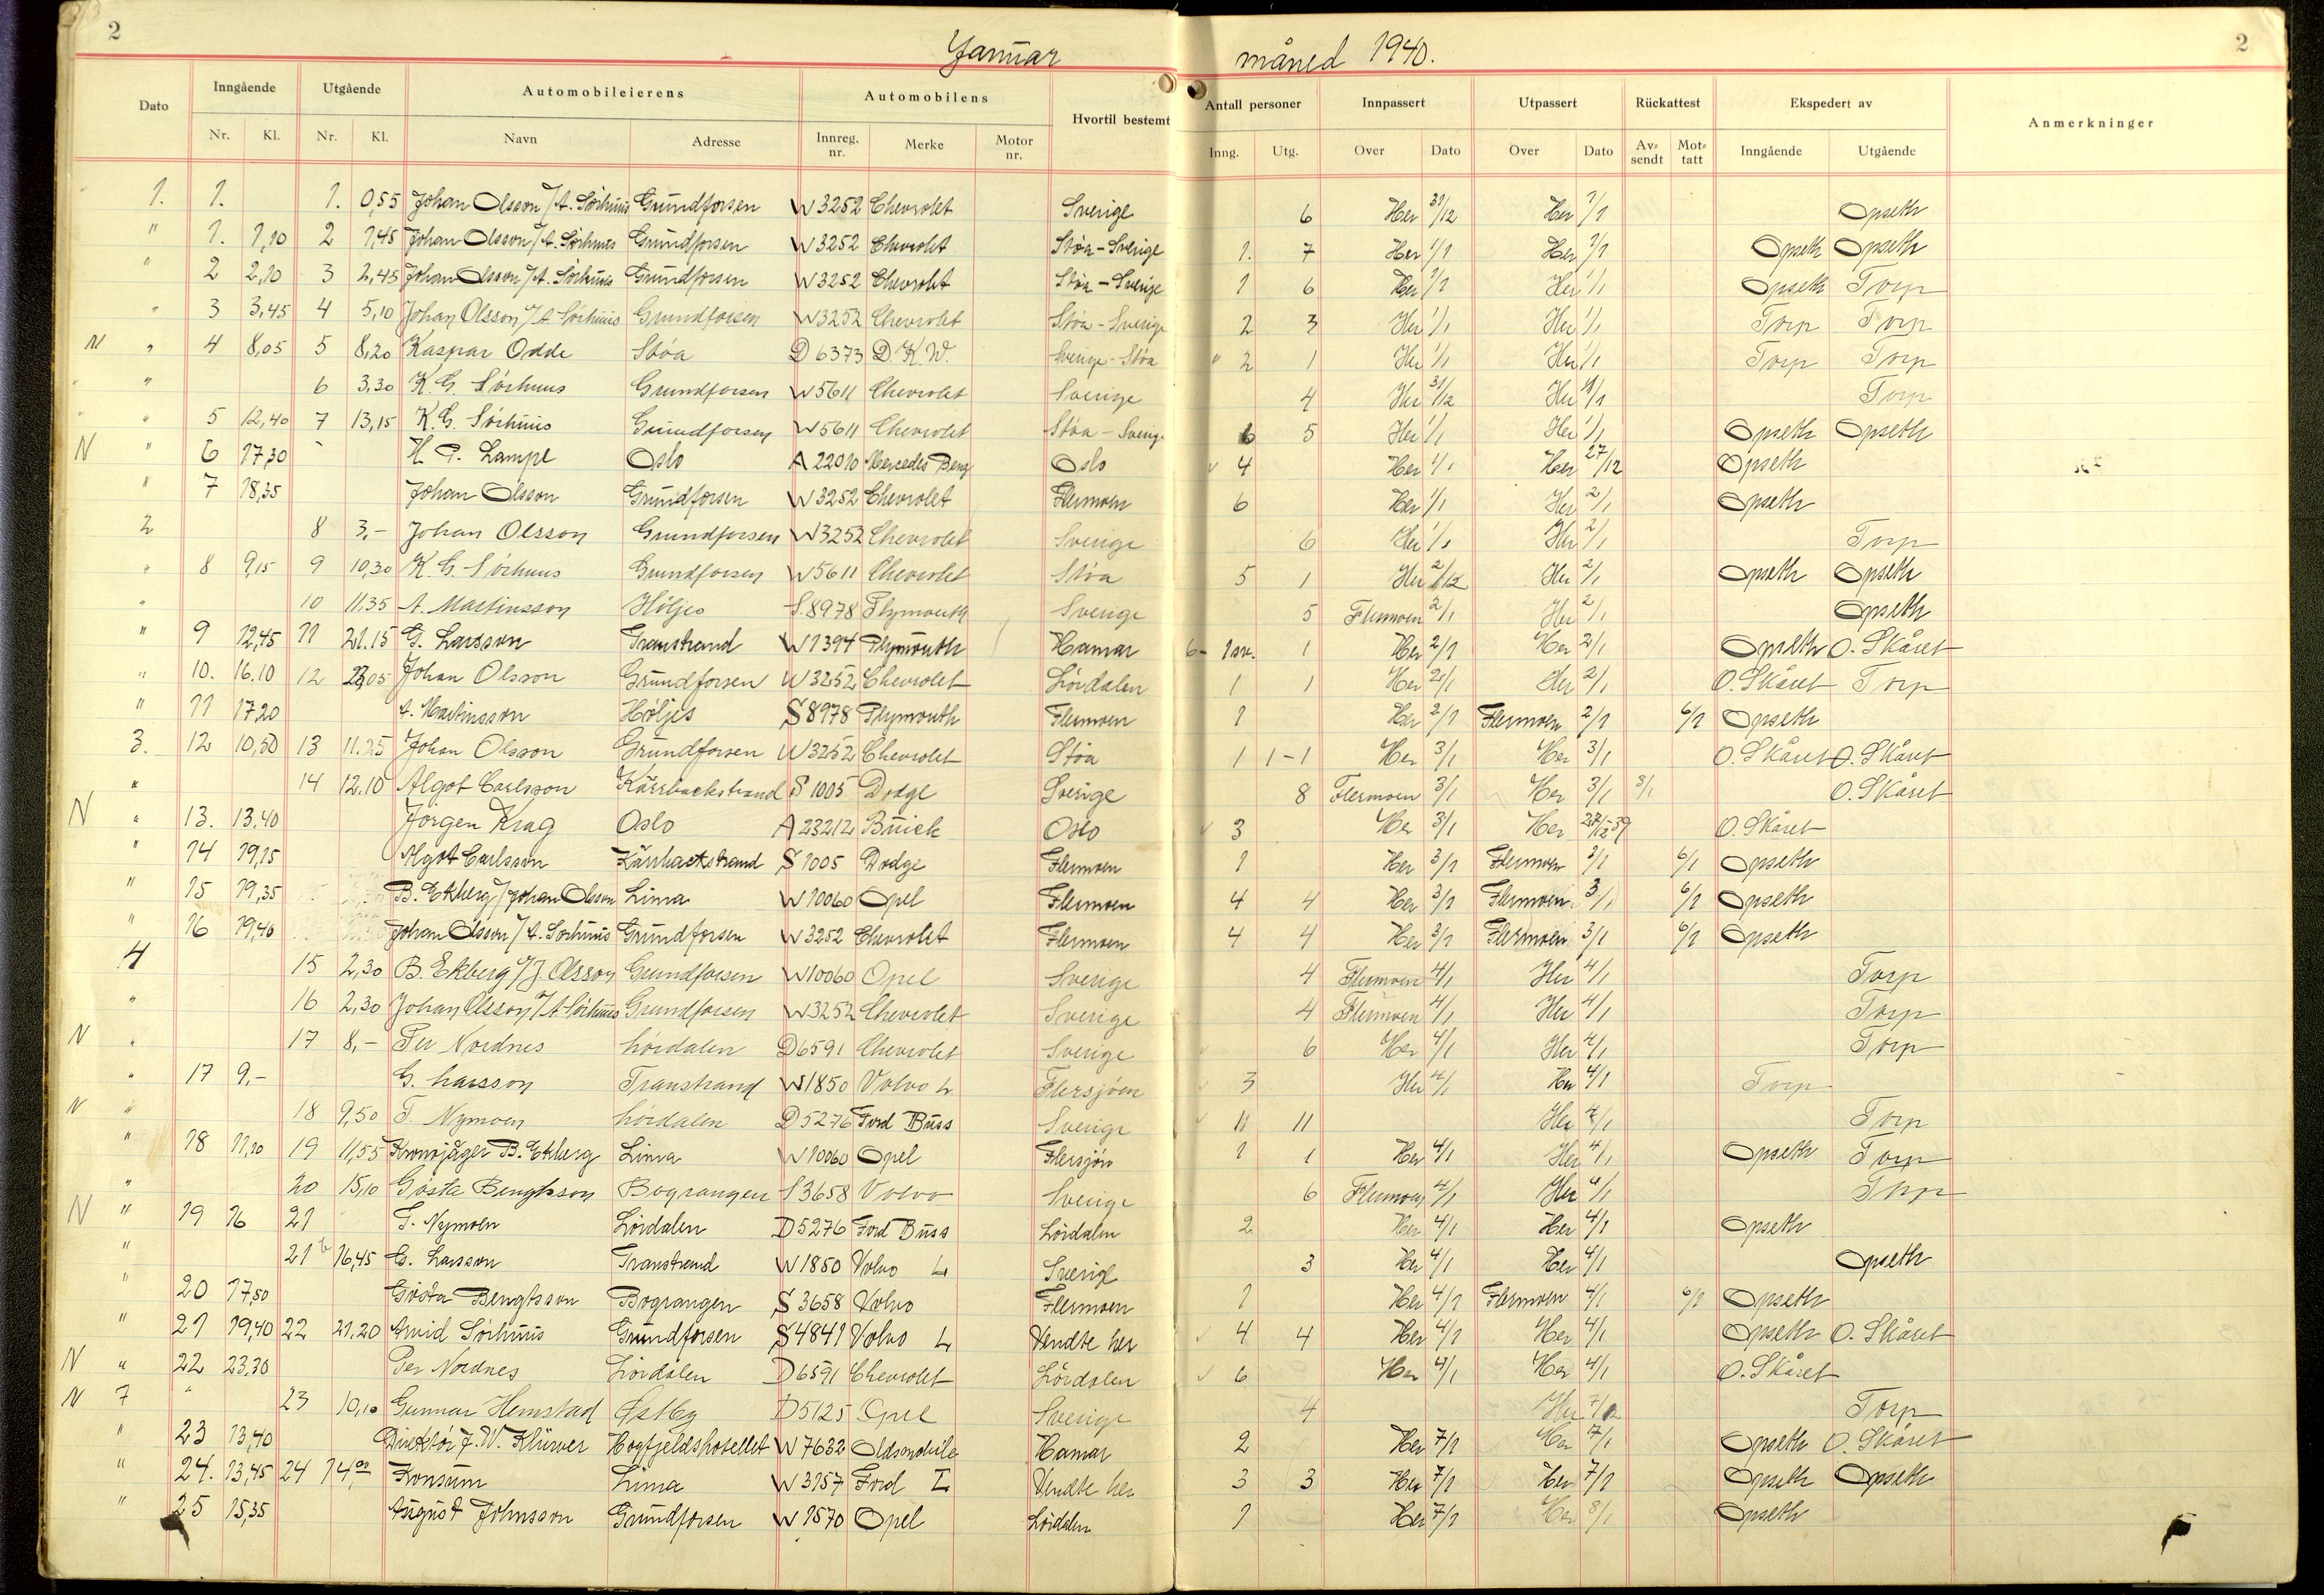 2
Januar måned 1940.
2
Dato Inngående Utgående Automobileierens Automobilens Hvortil bestemt Antall personer Innpassert Utpassert Rückattest Ekspedert av Anmerkninger
Nr. Kl. Nr. Kl. Navn Adresse Innreg. nr. Merke Motor nr. Inng. Utg. Over Dato Over Dato Av- sendt Mot- tatt Inngående Utgående
1. 1. 1. 0,55 Johan Olsson /A. Sörhuus Grundforsen W3252 Chevrolet Sverige 6 Her 31/12 Her 1/1 Opseth
" 1. 1,10 2 1,45 Johan Olsson /A. Sörhuus Grundforsen W3252 Chevrolet Stöa - Sverige 1. 7 Her 1/1 Her 1/1 Opseth Opseth
" 2 2,10 3 2,45 Johan Olsson /A. Sörhuus Grundforsen W3252 Chevrolet Stöa - Sverige 1 6 Her 1/1 Her 1/1 Opseth Torp
" 3 3,45 4 5,10 Johan Olsson /A Sörhuus Grundforsen W3252 Chevrolet Stöa - Sverige 2 3 Her 1/1 Her 1/1 Torp Torp
N " 4 8,05 5 8,20 Kaspar Odde Stöa D 6373 D.K.W. Sverige - Stöa 2 1 Her 1/1 Her 1/1 Torp Torp
" 6 3,30 K.G. Sörhuus Grundforsen W5611 Chevrolet Sverige 4 Her 31/12 Her 1/1 Torp
" 5 12,40 7 13,15 K.G. Sörhuus Grundforsen W5611 Chevrolet Stöa - Sverige 6 5 Her 1/1 Her 1/1 Opseth Opseth
N " 6 17,30 H. P. Lampe Oslo A 22010 Mercedes Benz Oslo 4 Her 1/1 Her 27/12 Opseth
" 7 18,35 Johan Olsson Grundforsen W3252 Chevrolet Flermoen 6 Her 1/1 Her 2/1 Opseth
2 8 3,- Johan Olsson Grundforsen W3252 Chevrolet Sverige 6 Her 1/1 Her 2/1 Torp
" 8 9,15 9 10,30 K.G. Sörhuus Grundforsen W5611 Chevrolet Stöa 5 1 Her Her 2/1 Opseth Opseth
" 10 11,35 A. Martinsson Höljes S.8978 Plymouth Sverige 5 Flermoen 2/1 Her 2/1 Opseth
" 9 12,45 11 21.15 G. Larsson Transtrand W1394 Plymouth Hamar 6- 1sv. 1 Her 2/1 Her 2/1 Opseth O. Skåret
" 10. 16.10 12 23,05 Johan Olsson Grundforsen W3252 Chevrolet Lördalen 1 1 Her 2/1 Her 2/1 O. Skåret Torp
" 11 17,20 A. Martinsson Höljes S8978 Plymouth Flermoen 1 Her 2/1 Flermoen 2/1 6/1 Opseth
3. 12 10,50 13 11.25 Johan Olsson Grundforsen W3252 Chevrolet Stöa 1 1-1 Her 3/1 Her 3/1 O. Skåret O. Skåret
" 14 12.10 Algot Carlsson Kärrbackstrand S 1005 Dodge Sverige 8 Flermoen 3/1 Her 3/1 3/1 O. Skåret
N " 13. 13.40 Jörgen Krag Oslo A 23212 Buick Oslo 3 Her 3/1 Her O. Skåret
" 14 19,15 Algot Carlsson Kärrbackstrand S 1005 Dodge Flermoen 1 Her 3/1 Flermoen 3/1 6/1 Opseth
" 15 19,35 B. Ekberg /Johan Olsson Lima W10060 Opel Flermoen 4 4 Her 3/1 Flermoen 3/1 6/1 Opseth
" 16 19,40 Johan Olsson /A. Sörhuus Grundforsen W3252 Chevrolet Flermoen 4 4 Her 3/1 Flermoen 3/1 6/1 Opseth
4 15 2,30 B Ekberg /J. Olsson Grundforsen W10060 Opel Sverige 4 Flermoen 4/1 Her 4/1 Torp
" 16 2,30 Johan Olsson /A Sörhuus Grundforsen W3252 Chevrolet Sverige 4 Flermoen 4/1 Her 4/1 Torp
N " 17 8,- Per Nordnes Lördalen D6591 Chevrolet Sverige 6 Her 4/1 Her 4/1 Torp
" 17 9,- G. Larsson Transtrand W1850 Volvo L Flersjöen 3 Her 4/1 Her 4/1 Torp
N " 18 9,50 T. Nymoen Lördalen D5276 Ford Buss Sverige 11 11 Her 4/1 Torp
" 18 11,20 19 11,55 Kronojäger B. Ekberg Lima W10060 Opel Flersjön 1 1 Her 4/1 Her 4/1 Opseth Torp
" 20 15,10 Gösta Bengtsson Bograngen S3658 Volvo Sverige 6 Flermoen 4/1 Her 4/1 Torp
N " 19 16 21 T. Nymoen Lördalen D5276 Ford Buss Lördalen 2 Her 4/1 Her 4/1 Opseth
" 21 b 16,45 G. Larsson Transtrand W1850 Volvo L Sverige 3 Her 4/1 Her 4/1 Opseth
" 20 17,50 Gösta Bengtsson Bograngen S 3658 Volvo Flermoen 1 Her 4/1 Flermoen 4/1 6/1 Opseth
" 21 19,40 22 21,20 Arvid Sörhuus Grundforsen S4841 Volvo L Vendte her 4 4 Her 4/1 Her 4/1 Opseth O. Skåret
N " 22 23,30 Per Nordnes Lördalen D6591 Chevrolet Lördalen 6 Her 4/1 Her 4/1 O. Skåret
N 7 " 23 10,10 Gunnar Hemstad Østby D5125 Opel Sverige 4 Her Torp
" 23 13,40 Direktör J. W. Klüwer Hogfjeldshotellet W7632 Oldsmobile Hamar 2 Her 7/1 Her 7/1 Opseth O. Skåret
" 24. 13,45 24 14,00 Konsum Lima W3157 Ford L Vendte her 3 3 Her 7/1 Her 7/1 Opseth Opseth
" 25 15,35 August Johnsson Grundforsen W1570 Opel Lördalen 1 Her 7/1 Her 8/1 Opseth